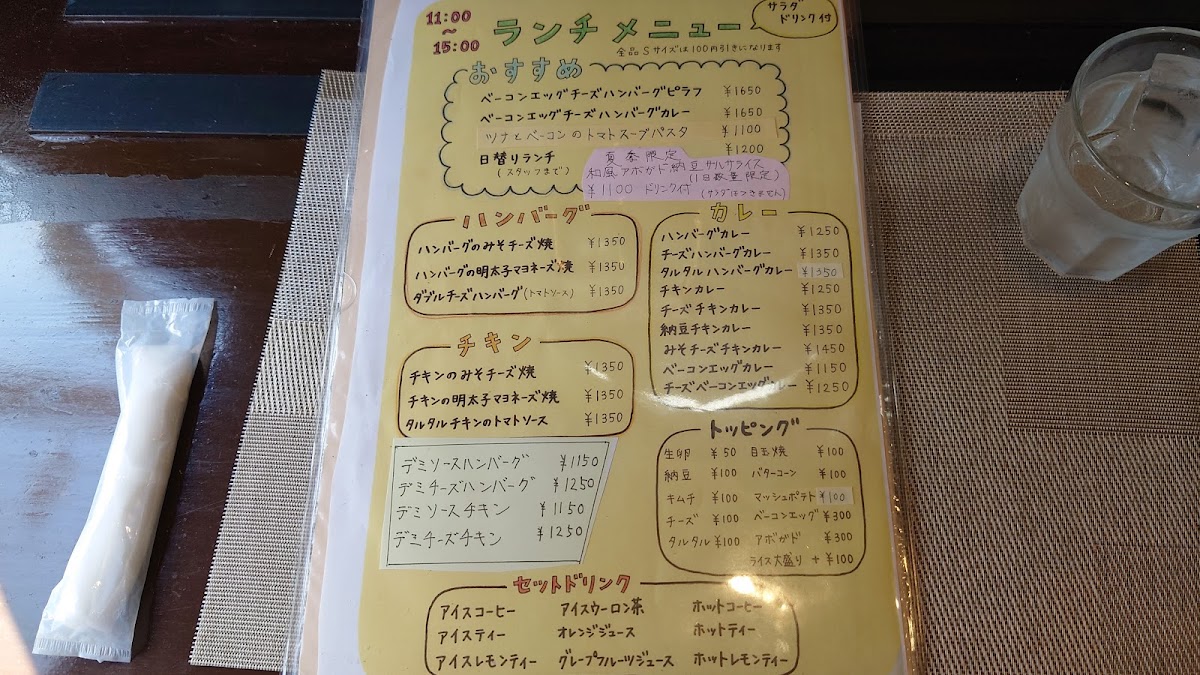 11:00
～
15:00
ランチメニュー
サラダ
ドリンク付
全品Sサイズは100円引きになります
おすすめ
ベーコンエッグチーズハンバーグピラフ ¥1650
ベーコンエッグチーズハンバーグカレー ¥1650
ツナとベーコンのトマトスープパスタ ¥1100
日替りランチ ¥1200
(スタッフまで)
夏季限定
和風アボガド納豆サルサライス
(1日数量限定)
¥1100 ドリンク付 (サラダはつきません)
ハンバーグ
ハンバーグのみそチーズ焼 ¥1350
ハンバーグの明太子マヨネーズ焼 ¥1350
ダブルチーズハンバーグ(トマトソース) ¥1350
チキン
チキンのみそチーズ焼 ¥1350
チキンの明太子マヨネーズ焼 ¥1350
タルタルチキンのトマトソース ¥1350
デミソースハンバーグ ¥1150
デミチーズハンバーグ ¥1250
デミソースチキン ¥1150
デミチーズチキン ¥1250
カレー
ハンバーグカレー ¥1250
チーズハンバーグカレー ¥1350
タルタルハンバーグカレー ¥1350
チキンカレー ¥1250
チーズチキンカレー ¥1350
納豆チキンカレー ¥1350
みそチーズチキンカレー ¥1450
ベーコンエッグカレー ¥1150
チーズベーコンエッグカレー ¥1250
トッピング
生卵 ¥50 目玉焼 ¥100
納豆 ¥100 バターコーン ¥100
キムチ ¥100 マッシュポテト ¥100
チーズ ¥100 ベーコンエッグ ¥300
タルタル ¥100 アボガド ¥300
ライス大盛り + ¥100
セットドリンク
アイスコーヒー アイスウーロン茶 ホットコーヒー
アイスティー オレンジジュース ホットティー
アイスレモンティー グレープフルーツジュース ホットレモンティー